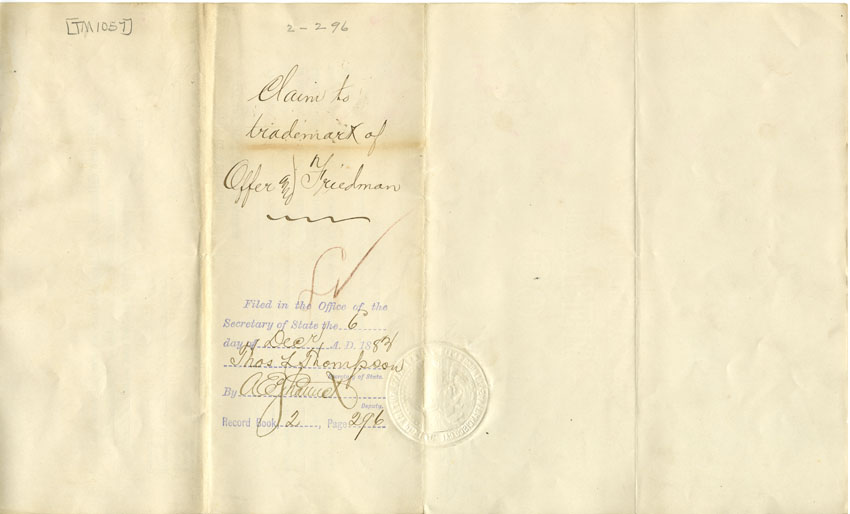 [TM1057]
2-296
Claim to
trademark of
Offer & Friedman
Filed in the Office of the
Secretary of State the 6
day of Decr A. D. 188
Thos L. Thompson
Secretary of State.
By
Deputy.
Record Book 2, Page 296